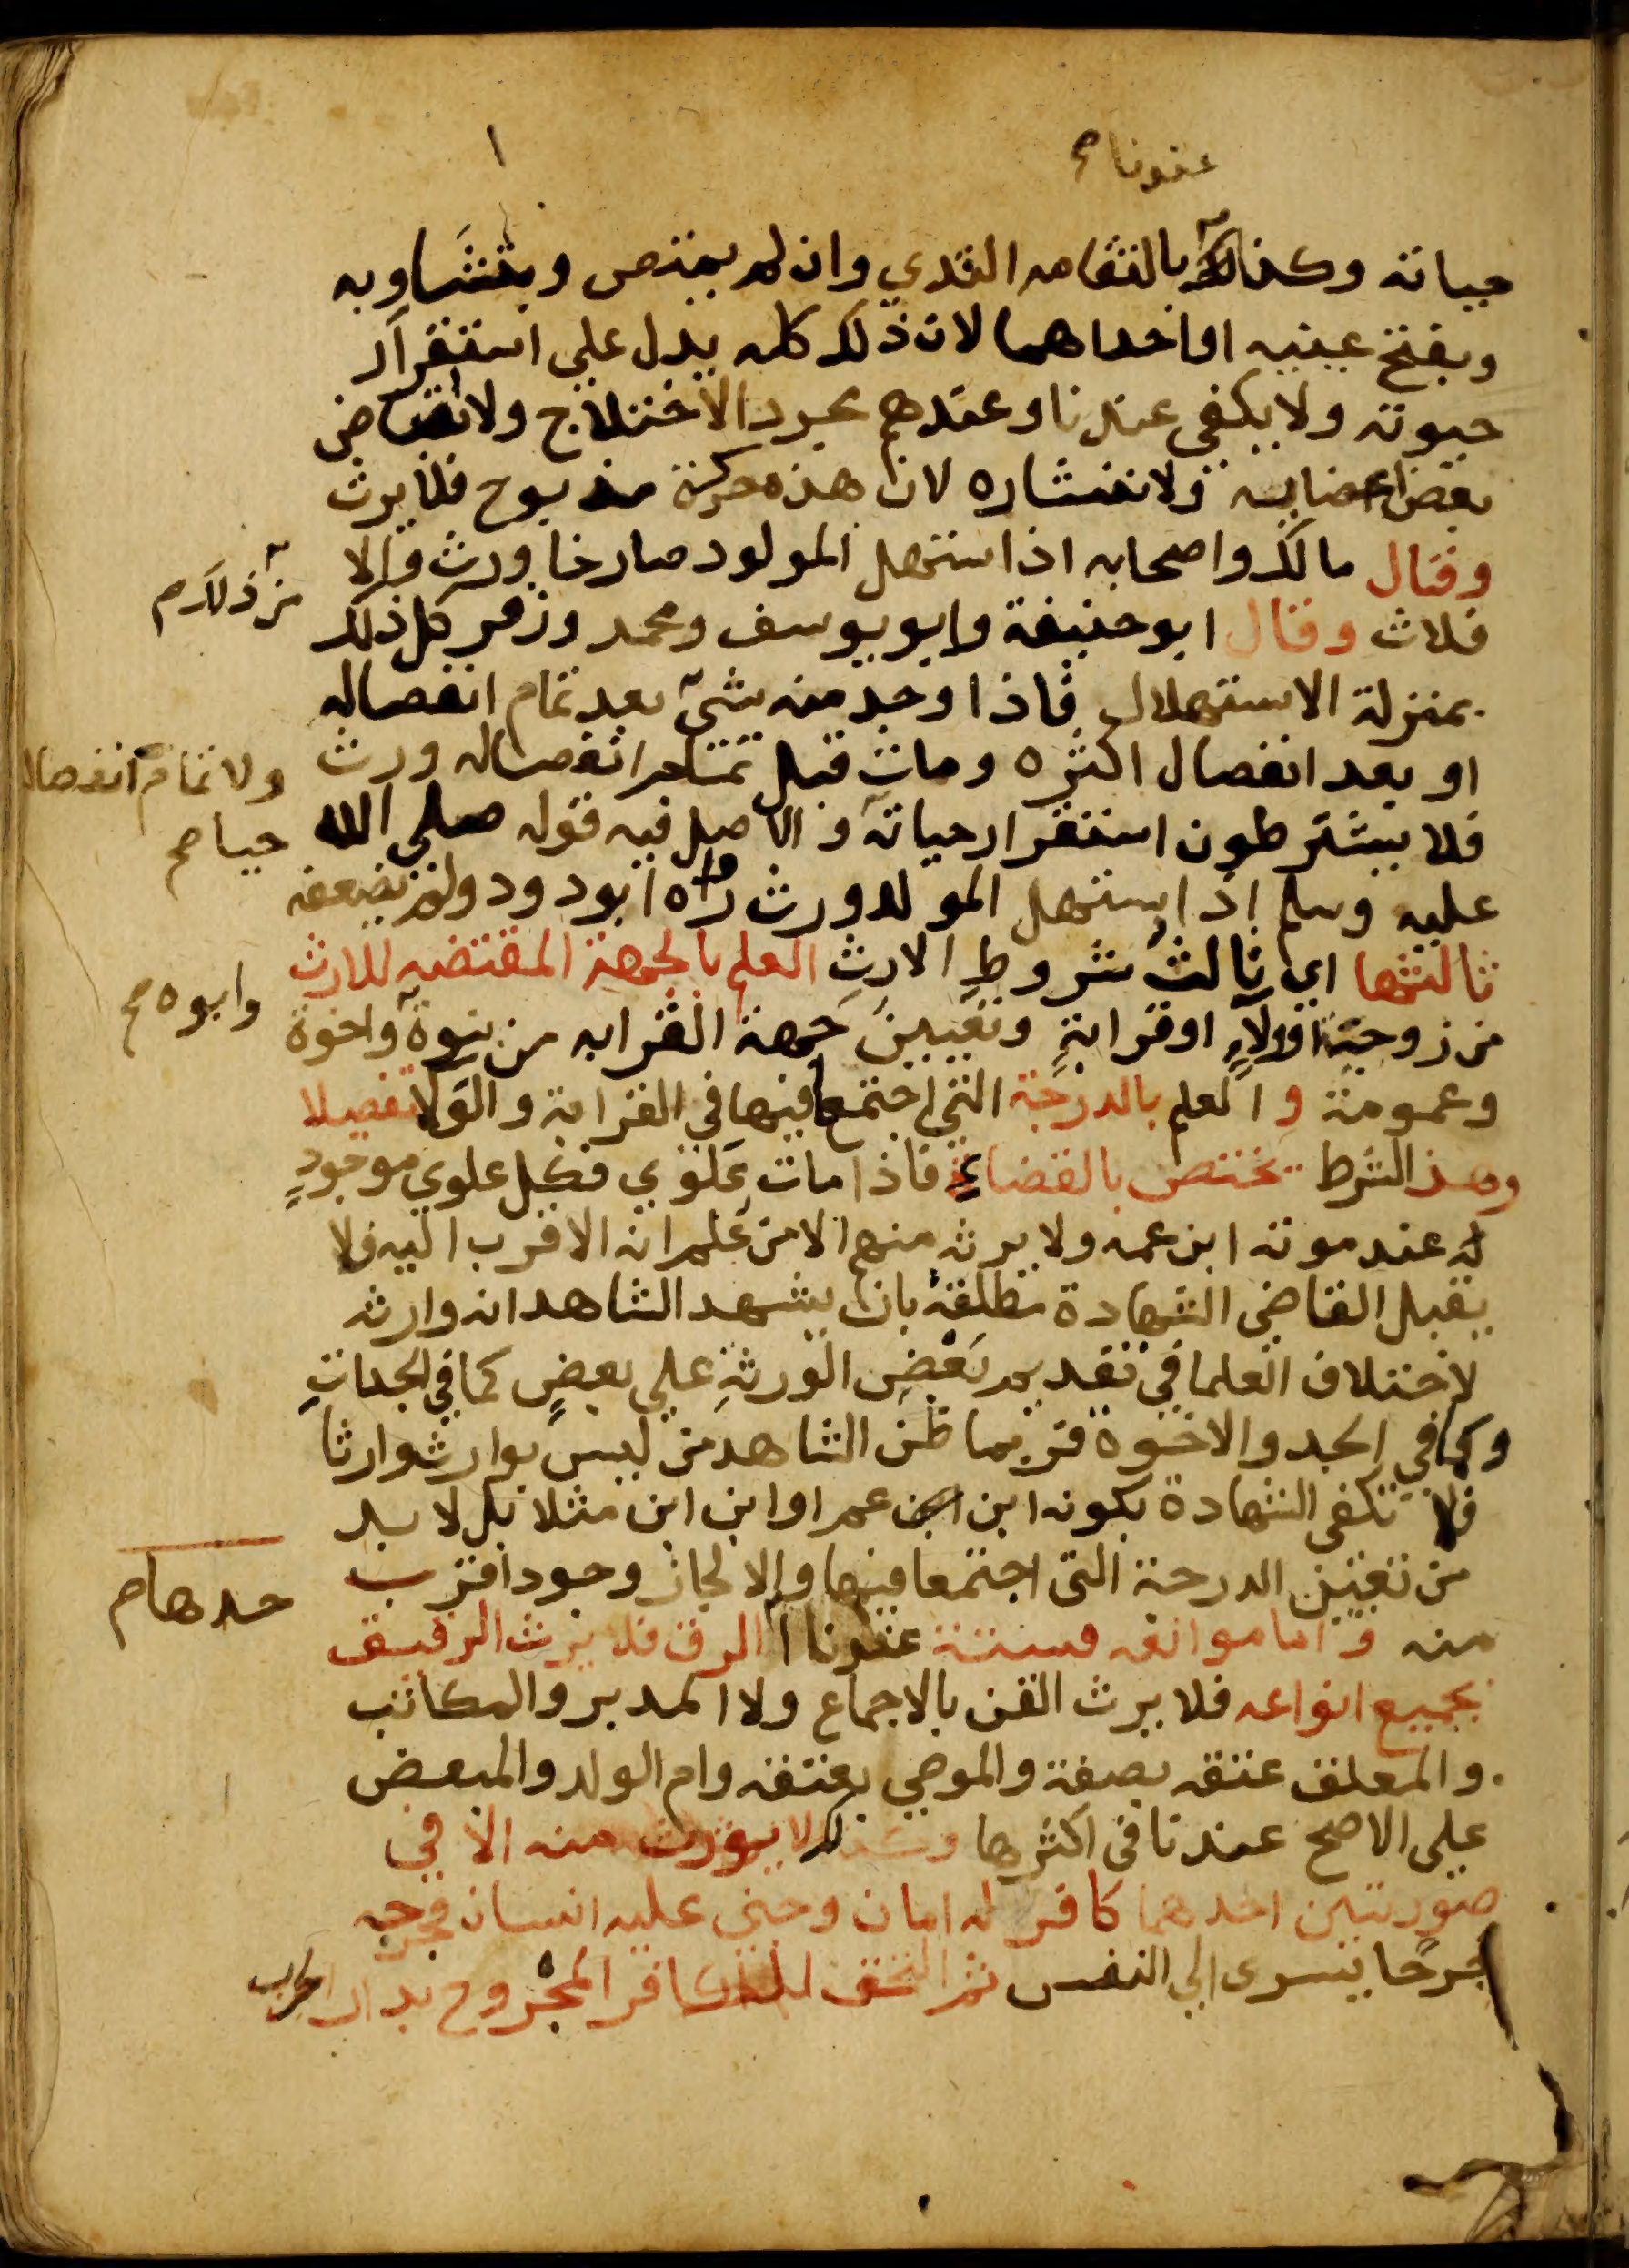 عندنا صح
حياته وكذلك بالتقامه الثدي وان لم يمتص وبتثاوبه
وبفتح عينيه او احداهما لان ذلك كله يدل علي استقرار
حيوته ولا يكفي عندنا وعندهم مجرد الاختلاج ولا انقباض
بعض اعضايه ولا انتشاره لان هذه حركة مذبوح فلا يرث
وقال مالك واصحابه اذا استهل المولود صارخا ورث والا
من ذلك صح
فلات وقال ابو حنيفة وابو يوسف ومحمد وزفر كل ذلك
بمنزلة الاستهلال فاذا وجد منه شيء بعد تمام انفصاله
او بعد انفصال اكثره ومات قبل تمام انفصاله ورث
ولا تمام انفصاله
حيا صح
فلا يشترطون استقرار حياته والاصل فيه قوله صلي الله
عليه وسلم اذا استهل المولود ورث رواه ابو دود ولم يضعفه
ثالثها اي ثالث شروط الارث العلم بالجهة المقتضيه للارث
وابوه صح
من زوجية او ولاء او قرابة وتعيين جهة القرابه من بنوة واخوة
وعمومة والعلم بالدرجة التي اجتمعا فيها في القرابة والولا تفصيلا
وهذا الشرط يختص بالقضاء فاذا مات علوي فكل علوي موجود
له عند موته ابن عمه ولا يرثه منهم الا من علم انه الاقرب اليه فلا
يقبل القاضي الشهادة مطلقة بان يشهد الشاهد انه وارثه
لاختلاف العلما في تقديم بعض الورثة علي بعض كما في الجدات
وكما في الجد والاخوة فربما ظن الشاهد من ليس بوارث وارثا
فلا تكفي الشهادة بكونه ابن ابن عم او ابن ابن مثلا بل لا بد
من تعيين الدرجة التي اجتمعا فيها والا لجاز وجود اقرب
حدها صح
منه واما موانعه فستة عندنا الرق فلا يرث الرقيق
بجميع انواعه فلا يرث القن بالاجماع ولا المدبر والمكاتب
والمعلق عتقه بصفة والموصي بعتقه وام الولد والمبعض
علي الاصح عندنا في اكثرها وكذلك لا يورث منه الا في
صورتين احدهما كافر له امان وجني عليه انسان فجرحه
جرحا يسري الي النفس ثم التحق الكافر المجروح بدار الحرب